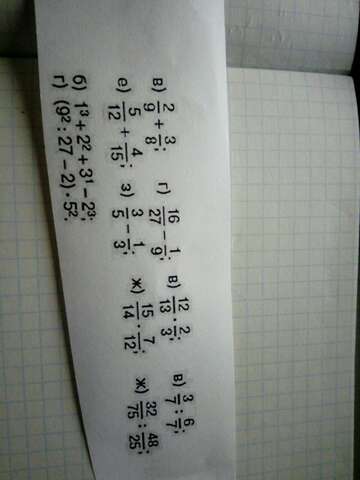 в) 2/9 + 3/8; г) 16/27 − 1/9; в) 12/13 · 2/3; в) 3/7 : 6/7;
е) 5/12 + 4/15; з) 3/5 − 1/3; ж) 15/14 · 7/12; ж) 32/75 : 48/25;
б) 1³ + 2² + 3¹ − 2³;
г) (9² : 27 − 2) · 5²;